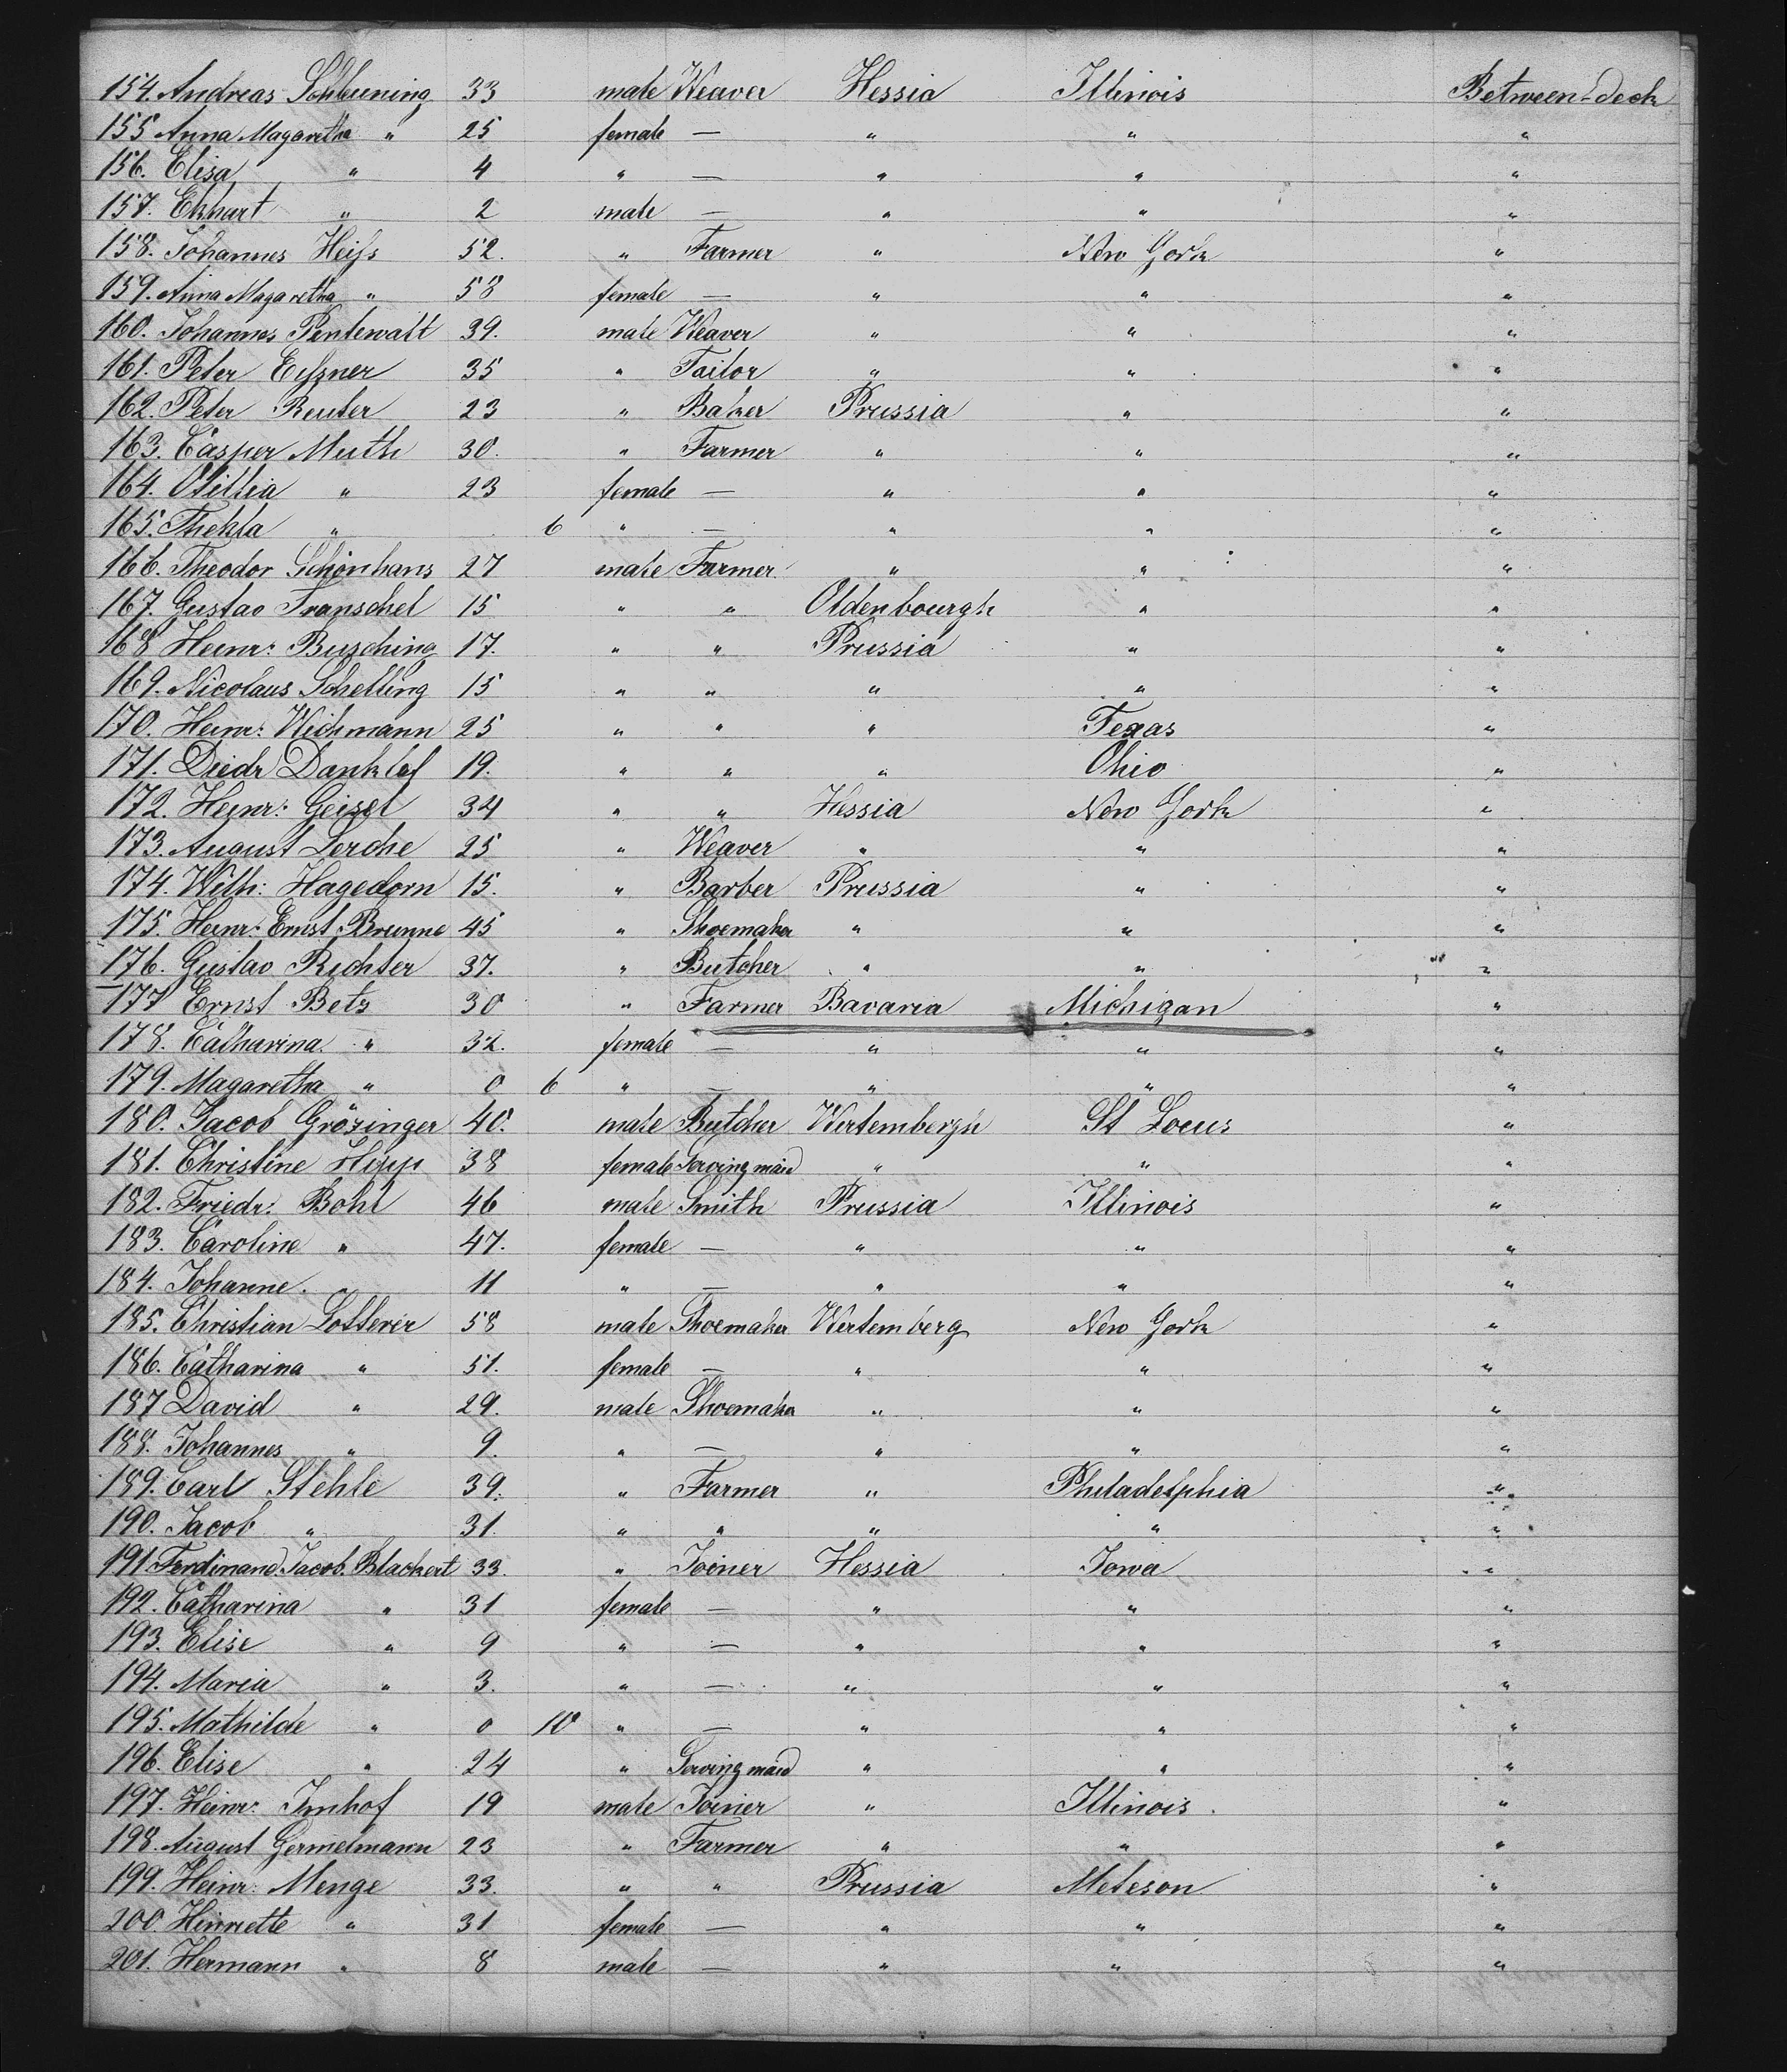 154. Andreas Schleuning 33 male Weaver Hessia Illinois Between-deck
155 Anna Magaretha " 25 female — " " "
156. Elisa " 4 " — " " "
157. Ekhart " 2 male — " " "
158. Johannes Heiss 52. " Farmer " New York "
159. Anna Magaretha " 58 female — " " "
160. Johannes Pentewatt 39. male Weaver " " "
161. Peter Eißner 35 " Tailor " " "
162. Peter Reuter 23 " Baker Prussia " "
163. Casper Muth 30. " Farmer " " "
164. Otillia " 23 female — " " "
165. Thekla " 6 " — " " "
166. Theodor Schönhans 27 male Farmer " " "
167. Gustav Transchel 15 " " Oldenbourgh " "
168 Heinr: Busching 17. " " Prussia " "
169. Nicolaus Schelling 15 " " " " "
170. Heinr: Wichmann 25 " " " Texas "
171. Diedr Danklef 19. " " " Ohio "
172. Heinr: Geisel 34 " " Hessia New York "
173. August Lerche 25 " Weaver " " "
174. Wilh: Hagedorn 15. " Barber Prussia " "
175. Heinr: Ernst Brunne 45 " Shoemaker " " "
176. Gustav Richter 37. " Butcher " " "
177 Ernst Betz 30 " Farmer Bavaria Michigan "
178. Catharina " 32. female — " " "
179. Magaretha " 0 6 " — " " "
180. Jacob Grözinger 40. male Butcher Wertembergh St Louis "
181. Christine Hipp 38 female Serving maid " " "
182. Friedr: Bohl 46 male Smith Prussia Illinois "
183. Caroline " 47. female — " " "
184. Johanne. " 11 " — " " "
185. Christian Lotterer 58 male Shoemaker Wertemberg New York "
186. Catharina " 51. female — " " "
187 David " 29. male Shoemaker " " "
188. Johannes " 9. " — " " "
189. Carl Stehle 39. " Farmer " Philadelphia "
190. Jacob " 31. " " " " "
191 Ferdinand Jacob Blackert 33. " Joiner Hessia Iowa "
192. Catharina " 31 female — " " "
193. Elise " 9 " — " " "
194. Maria " 3. " — " " "
195. Mathilde " 0 10 " — " " "
196. Elise " 24 " Serving maid " " "
197. Heinr: Imhof 19 male Joiner " Illinois. "
198. August Germelmann 23 " Farmer " " "
199. Heinr: Menge 33. " " Prussia Meteson "
200. Henriette " 31 female — " " "
201. Hermann " 8 male — " " "